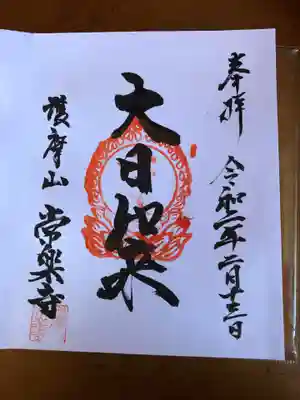 奉拝
令和二年二月十三日
大日如来
護摩山
常楽寺